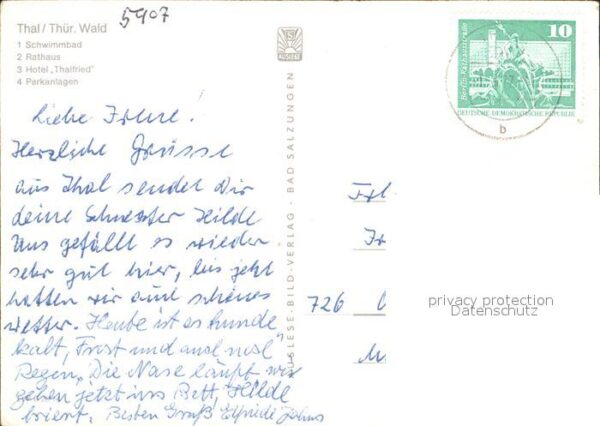 5907
Thal / Thür. Wald
1 Schwimmbad
2 Rathaus
3 Hotel „Thalfried"
4 Parkanlagen
AUSLESE
AUSLESE-BILD-VERLAG · BAD SALZUNGEN
10
Berlin-Rathausstraße
DEUTSCHE DEMOKRATISCHE REPUBLIK
b
Liebe Irene!
Herzliche Grüsse
aus Thal sendet Dir
deine Schwester Hilde
Uns gefällt es wieder
sehr gut hier, bis jetzt
hatten wir auch schönes
Wetter. Heute ist es hunde
kalt, Frost und auch noch
Regen. Die Nase läuft wir
gehen jetzt ins Bett, Hilde
friert. Besten Gruß Elfriede
Frl
Ir
726
privacy protection
Datenschutz